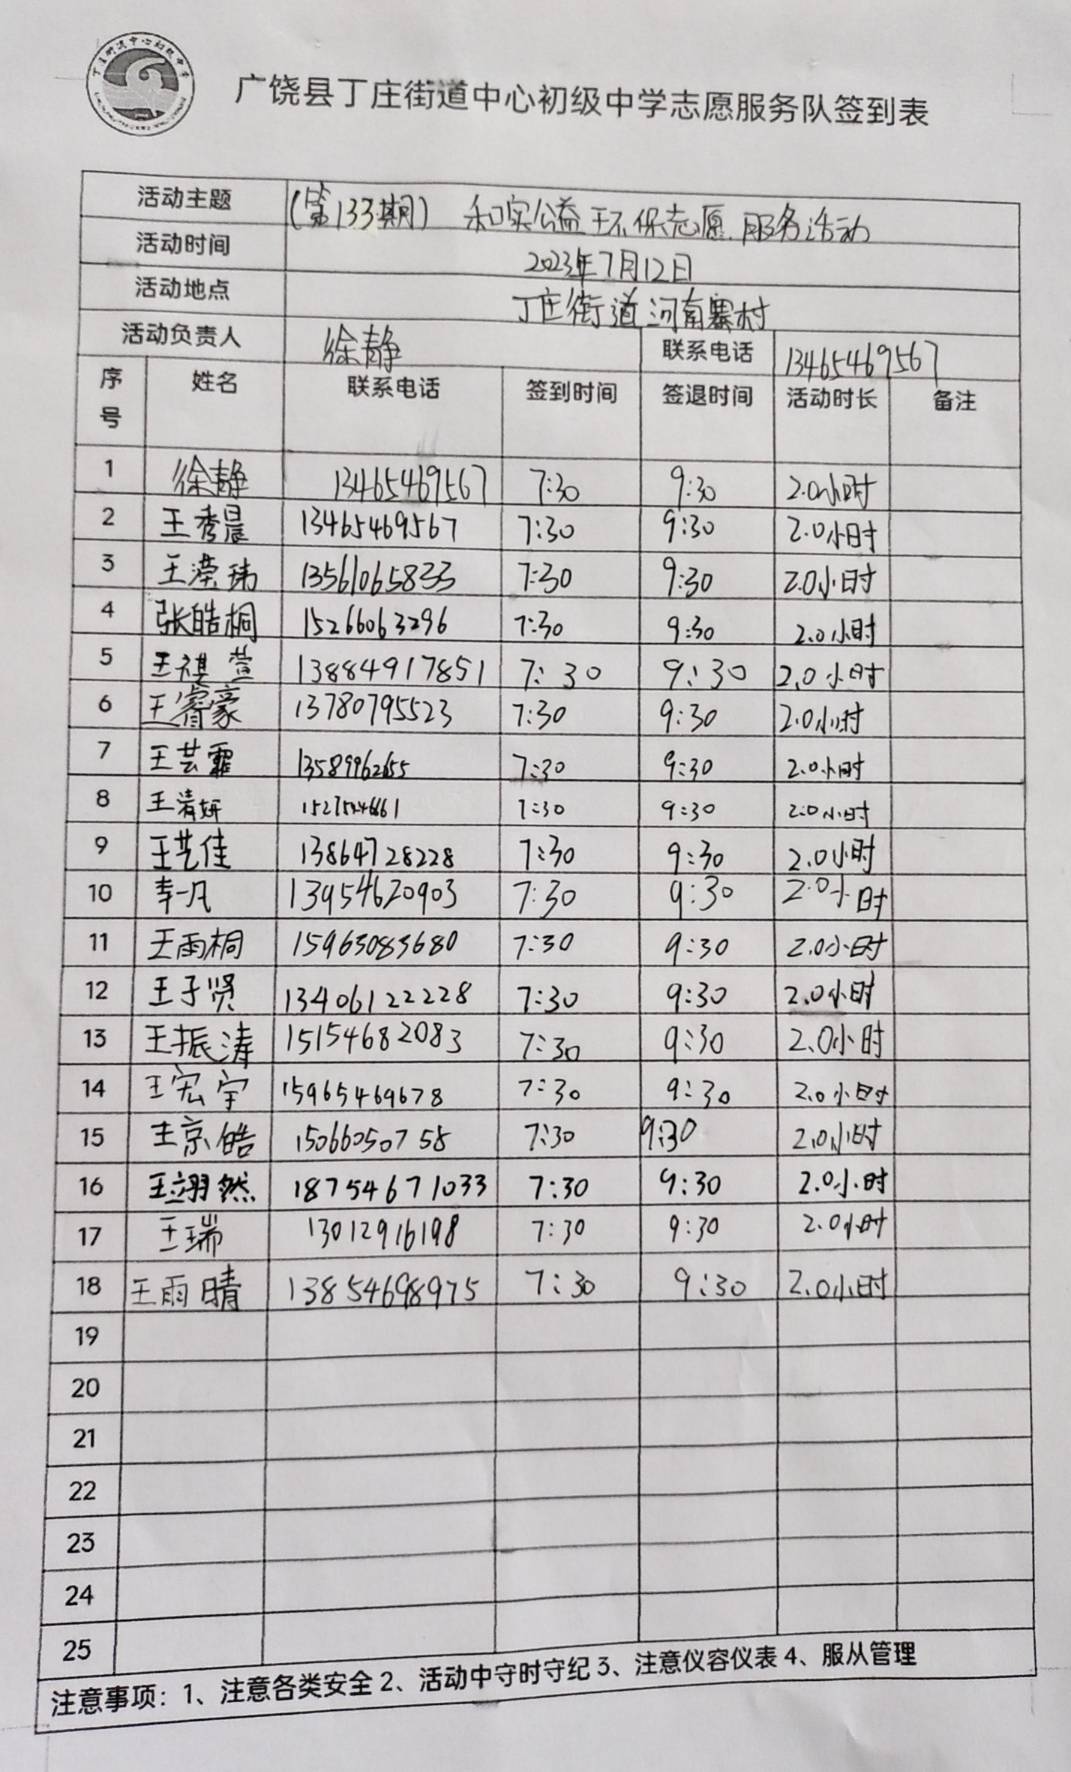 广饶县丁庄街道中心初级中学志愿服务队签到表
活动主题 (第133期) 和实公益环保志愿服务活动
活动时间 2023年7月12日
活动地点 丁庄街道河南寨村
活动负责人 徐静 联系电话 13465469567
序号 姓名 联系电话 签到时间 签退时间 活动时长 备注
1 徐静 13465469567 7:30 9:30 2.0小时
2 王秀晨 13465469567 7:30 9:30 2.0小时
3 王滢琦 13561065833 7:30 9:30 2.0小时
4 张皓桐 15266063296 7:30 9:30 2.0小时
5 王祺萱 13884917851 7:30 9:30 2.0小时
6 王睿豪 13780795523 7:30 9:30 2.0小时
7 王芸霏 13589962655 7:30 9:30 2.0小时
8 王清妍 7:30 9:30 2.0小时
9 王艺佳 13864728228 7:30 9:30 2.0小时
10 李一凡 13954620903 7:30 9:30 2.0小时
11 王雨桐 15963083680 7:30 9:30 2.0小时
12 王子贤 13406122228 7:30 9:30 2.0小时
13 王振涛 15154682083 7:30 9:30 2.0小时
14 王宏宇 15965469678 7:30 9:30 2.0小时
15 王京皓 15066050758 7:30 9:30 2.0小时
16 王翊然 18754671033 7:30 9:30 2.0小时
17 王瑞 13012916198 7:30 9:30 2.0小时
18 王雨晴 13854698975 7:30 9:30 2.0小时
19
20
21
22
23
24
25
注意事项：1、注意各类安全 2、活动中守时守纪 3、注意仪容仪表 4、服从管理